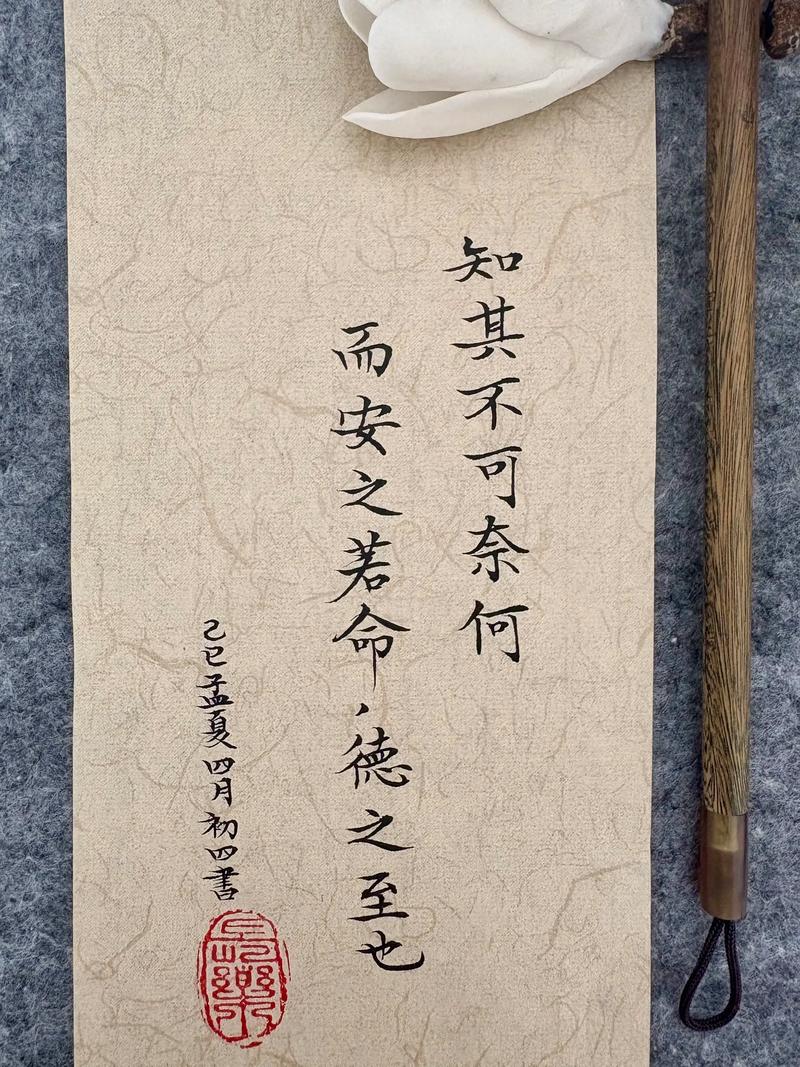 知其不可奈何
而安之若命，德之至也
己巳孟夏四月初四書
長樂